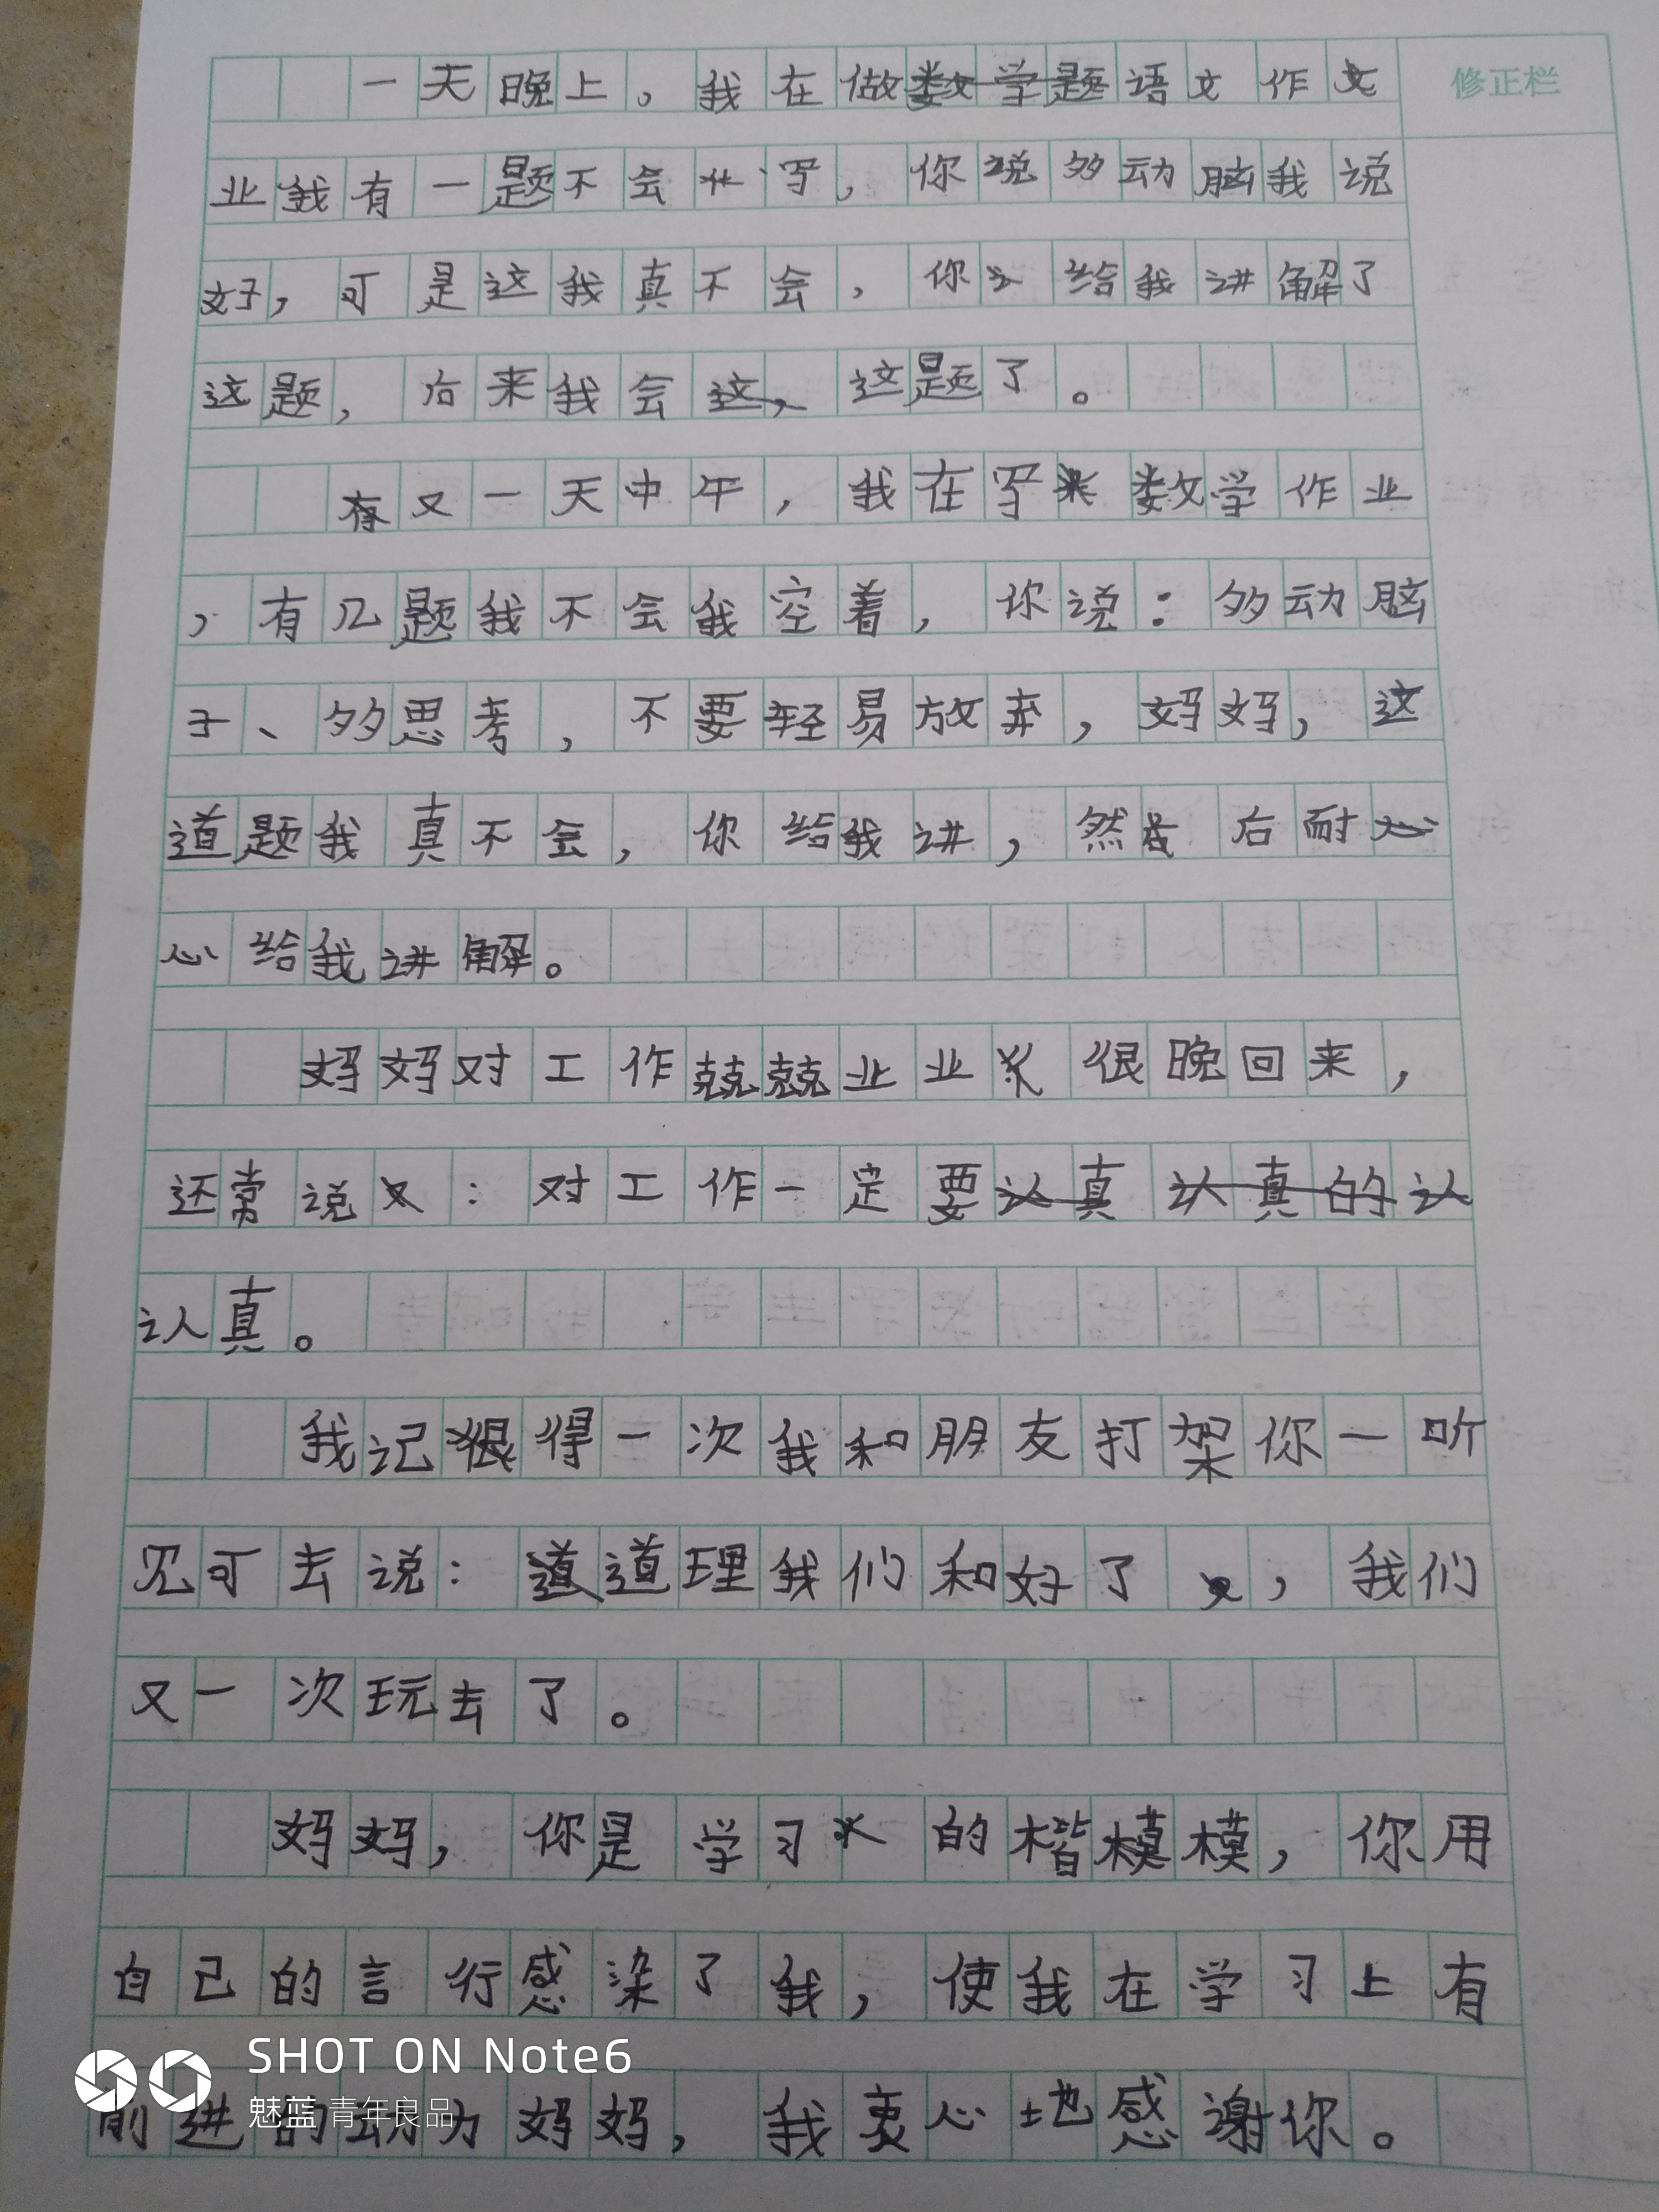 修正栏
一天晚上。我在做数学题语文作文
业我有一题不会 写，你说多动脑我说
好，可是这我真不会，你 给我讲解了
这题，后来我会这，这题了。
有又一天中午，我在写 数学作业
，有几题我不会我空着，你说：多动脑
子、多思考，不要轻易放弃，妈妈，这
道题我真不会，你给我讲，然 后耐心
心给我讲解。
妈妈对工作兢兢业业 很晚回来，
还常说 ：对工作一定要认真认真的认
认真。
我记狠得一次我和朋友打架你一听
见可去说：道道理我们和好了 ，我们
又一次玩去了。
妈妈，你是学习 的楷模模，你用
自己的言行感染了我，使我在学习上有
前进的动力妈妈，我衷心地感谢你。
SHOT ON Note6
魅蓝 青年良品